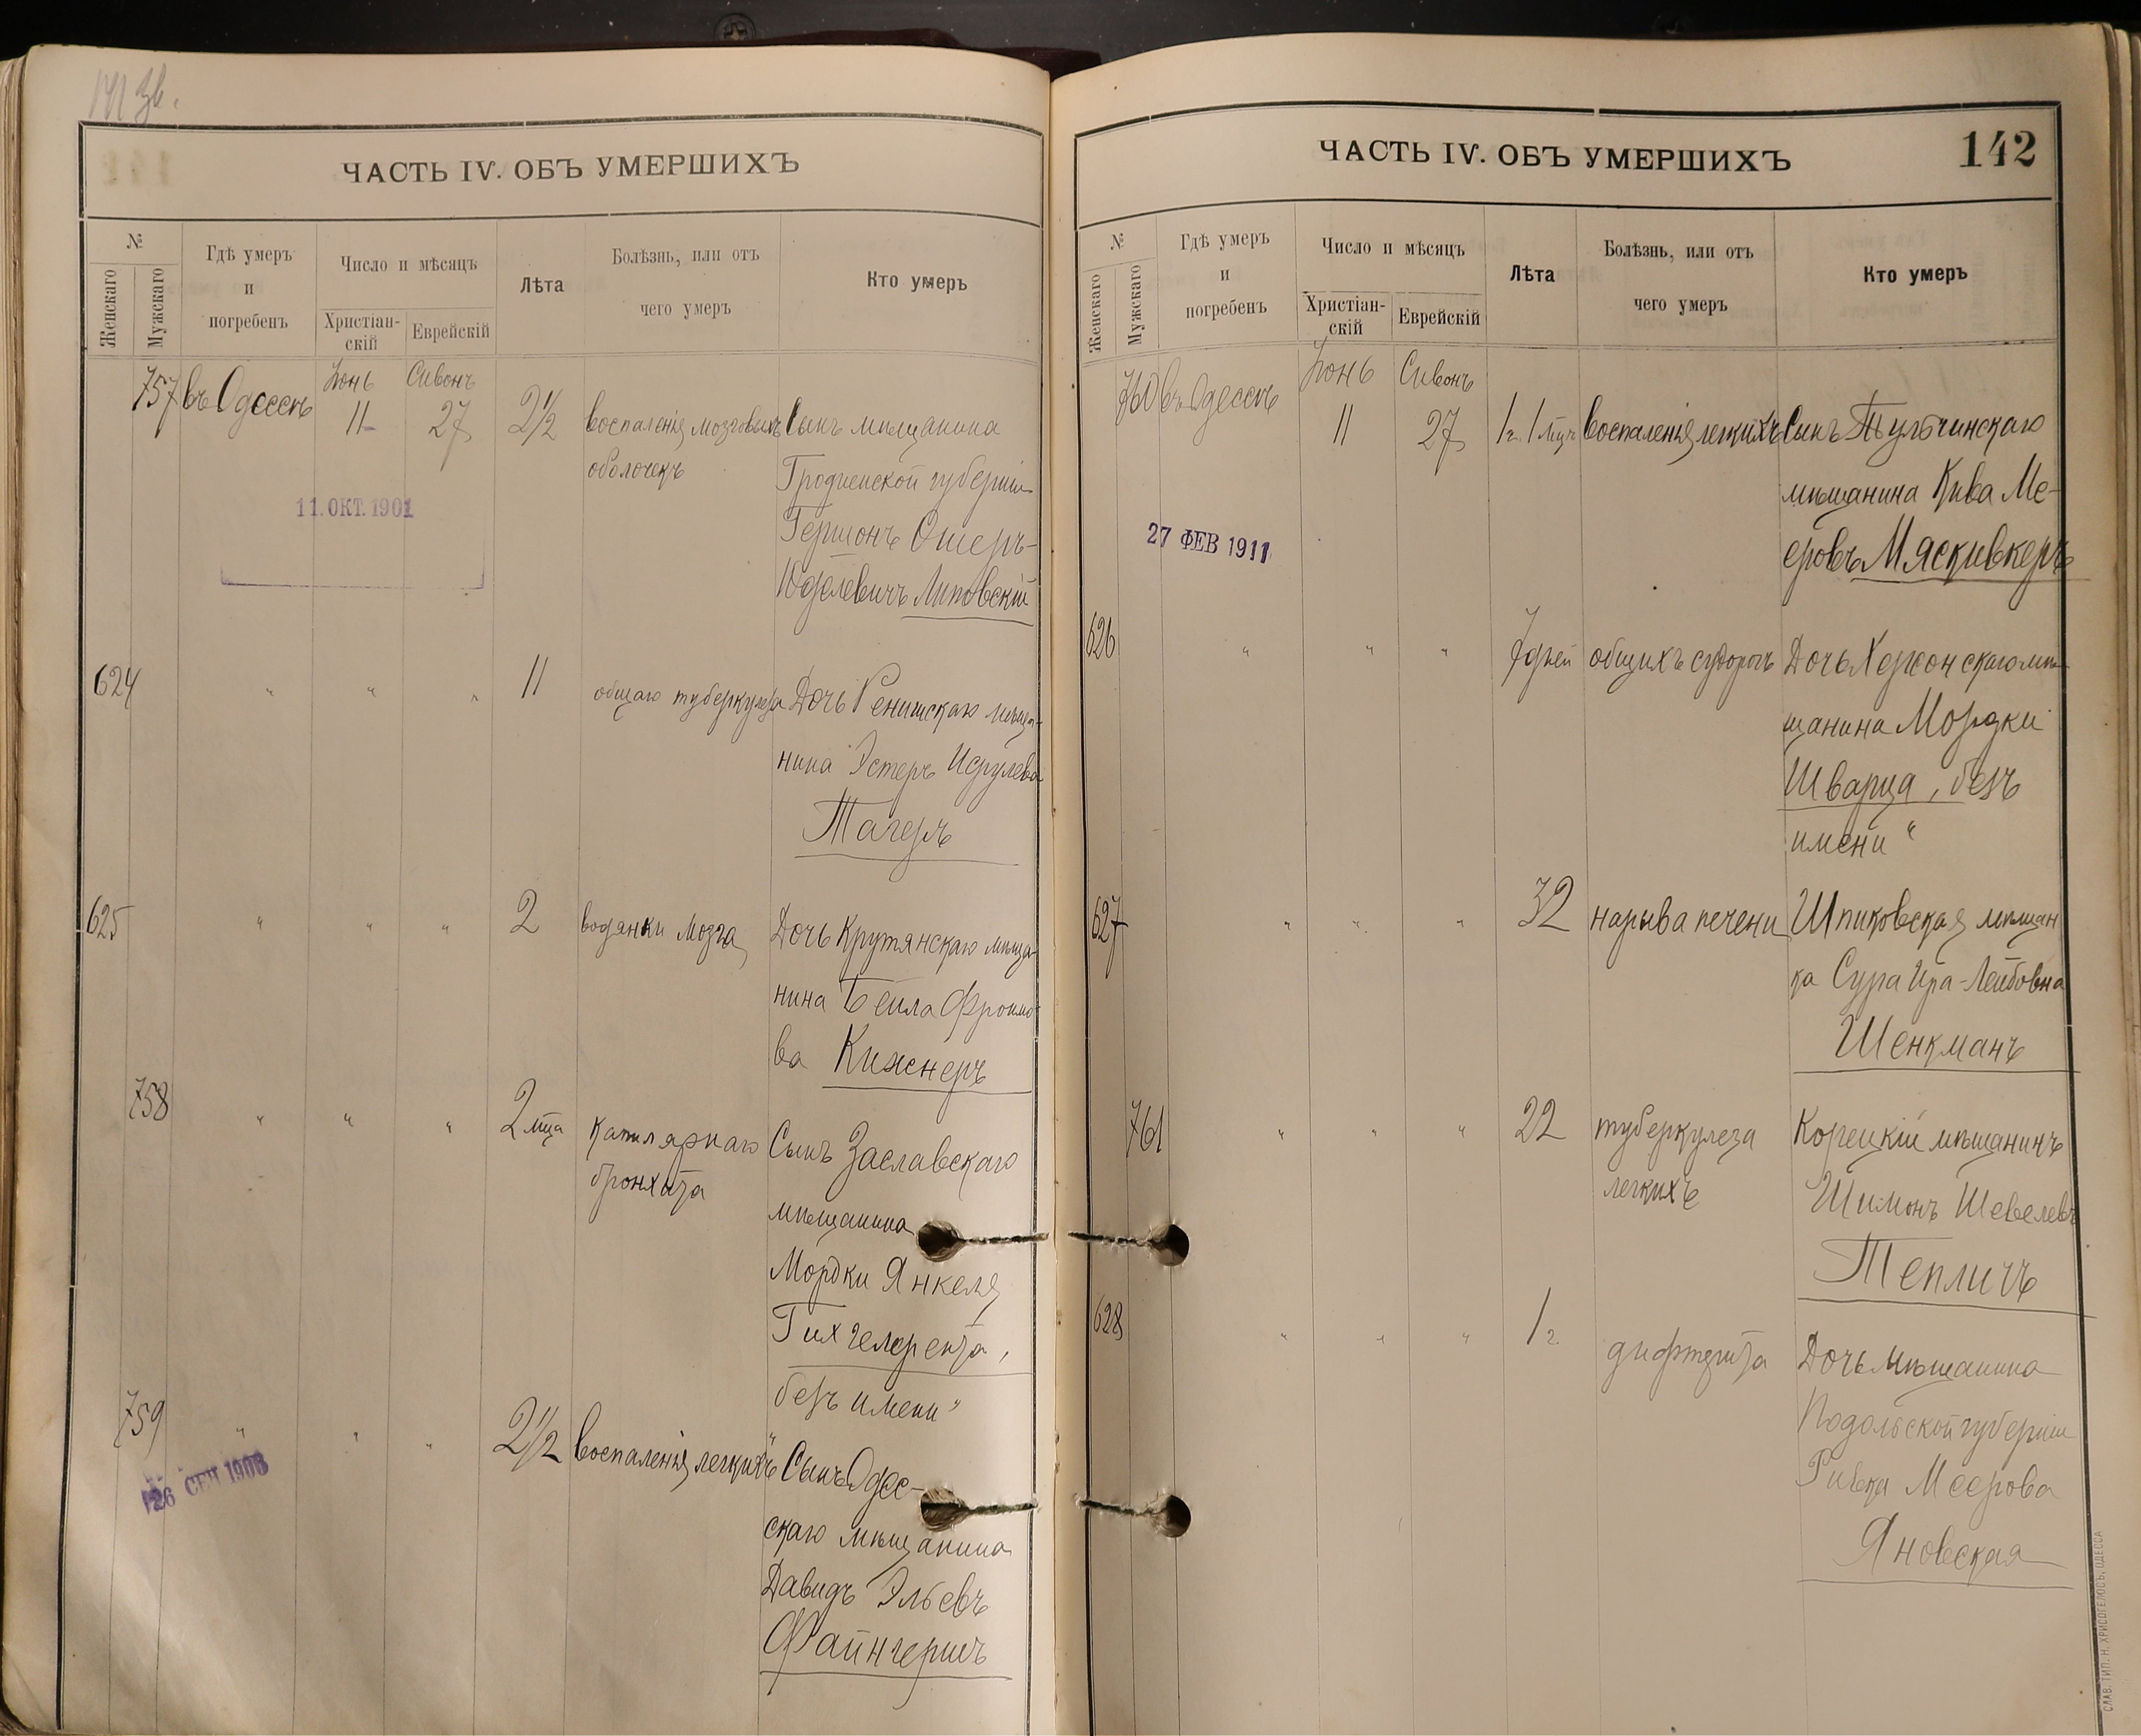 141 зв.
ЧАСТЬ IV. ОБЪ УМЕРШИХЪ
№
Женскаго
Мужскаго
Гдѣ умеръ
и
погребенъ
Число и мѣсяцъ
Христіан-
скій
Еврейскій
Лѣта
Болѣзнь, или отъ
чего умеръ
Кто умеръ
757 въ Одессѣ Іюнь 11 Сивонъ 27 2½ воспаленія мозговыхъ Сынъ мѣщанина
оболочекъ Гродненской губерніи
11. ОКТ. 1901
Гершонъ Ошеръ-
Юделевичъ Липовскій
624 " " " 11 общаго туберкулеза Дочь Ренийскаго мѣща-
нина Эстеръ Исрулева
Тагеръ
625 " " " 2 водянки мозга Дочь Крутянскаго мѣща-
нина Бейла Фроимо-
ва Кижнеръ
758 " " " 2 мца капилярнаго Сынъ Заславскаго
бронхита мѣщанина
Мордки Янкеля
Гихгелерента,
безъ имени"
759 " " " 2½ воспаленія легкихъ Сынъ Одес-
26 СЕН 1908
скаго мѣщанина
Давидъ Эльевъ
Файнгершъ
ЧАСТЬ IV. ОБЪ УМЕРШИХЪ
142
№
Женскаго
Мужскаго
Гдѣ умеръ
и
погребенъ
Число и мѣсяцъ
Христіан-
скій
Еврейскій
Лѣта
Болѣзнь, или отъ
чего умеръ
Кто умеръ
760 въ Одессѣ Іюнь 11 Сивонъ 27 1 г. 1 мцъ воспаленія легкихъ Сынъ Тульчинскаго
мѣщанина Кива Ме-
27 ФЕВ 1911
еровъ Мясківкеръ
626 " " " 7 дней общихъ судорогъ Дочь Херсонскаго мѣ-
щанина Мордки
Шварца, безъ
имени"
627 " " " 32 нарыва печени Шпиковская мѣщан
ка Сура Ира-Лейбовна
Шенкманъ
761 " " " 22 туберкулеза Корецкій мѣщанинъ
легкихъ Шимонъ Шевелевъ
Тепличъ
628 " " " 1 г. дифтерита Дочь мѣщанина
Подольской губерніи
Ривка Меерова
Яновская
СЛАВ. ТИП. Н. ХРИСОГЕЛОСЪ, ОДЕССА